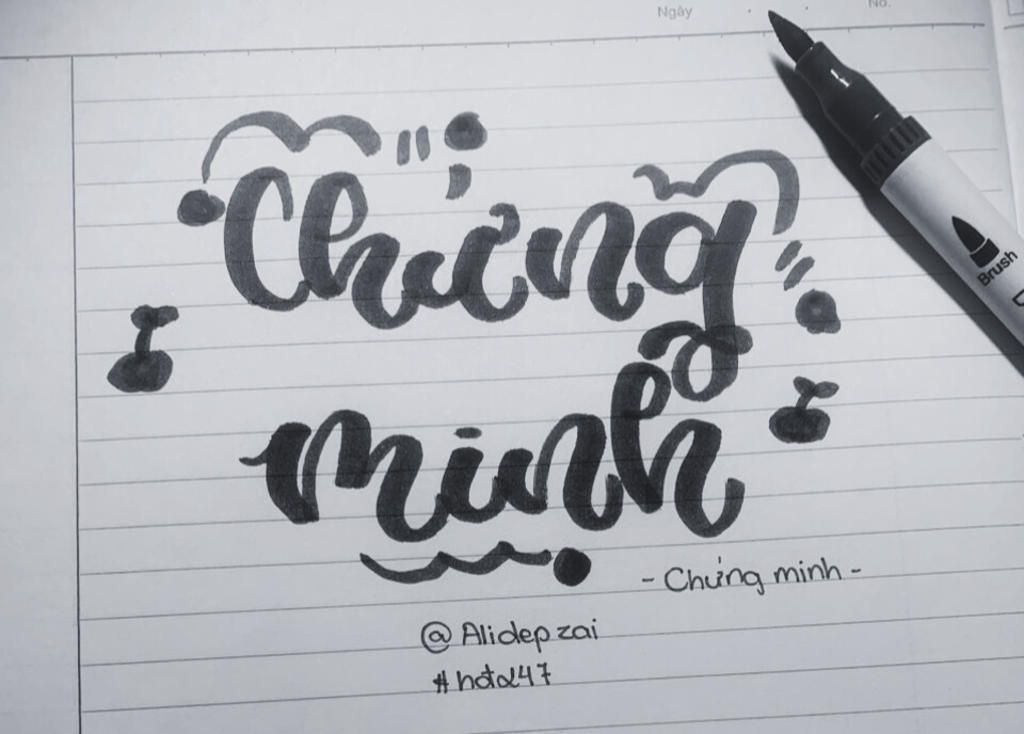 Ngày
No.
Brush
Chứng
minh
- Chứng minh -
@Alidep zai
#hotd47